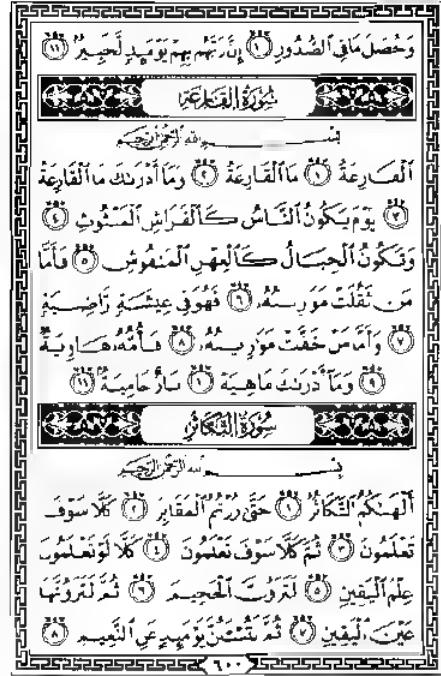 وَحُصِّلَ مَا فِي ٱلصُّدُورِ ١٠ إِنَّ رَبَّهُم بِهِمْ يَوْمَئِذٍ لَّخَبِيرٌ ١١
سُورَةُ القَارِعَةِ
بِسْمِ ٱللَّهِ ٱلرَّحْمَٰنِ ٱلرَّحِيمِ
ٱلْقَارِعَةُ ١ مَا ٱلْقَارِعَةُ ٢ وَمَآ أَدْرَىٰكَ مَا ٱلْقَارِعَةُ
٣ يَوْمَ يَكُونُ ٱلنَّاسُ كَٱلْفَرَاشِ ٱلْمَبْثُوثِ ٤
وَتَكُونُ ٱلْجِبَالُ كَٱلْعِهْنِ ٱلْمَنفُوشِ ٥ فَأَمَّا
مَن ثَقُلَتْ مَوَٰزِينُهُۥ ٦ فَهُوَ فِي عِيشَةٍ رَّاضِيَةٍ
٧ وَأَمَّا مَنْ خَفَّتْ مَوَٰزِينُهُۥ ٨ فَأُمُّهُۥ هَاوِيَةٌ
٩ وَمَآ أَدْرَىٰكَ مَا هِيَهْ ١٠ نَارٌ حَامِيَةٌ ١١
سُورَةُ التَّكَاثُرِ
بِسْمِ ٱللَّهِ ٱلرَّحْمَٰنِ ٱلرَّحِيمِ
أَلْهَىٰكُمُ ٱلتَّكَاثُرُ ١ حَتَّىٰ زُرْتُمُ ٱلْمَقَابِرَ ٢ كَلَّا سَوْفَ
تَعْلَمُونَ ٣ ثُمَّ كَلَّا سَوْفَ تَعْلَمُونَ ٤ كَلَّا لَوْ تَعْلَمُونَ
عِلْمَ ٱلْيَقِينِ ٥ لَتَرَوُنَّ ٱلْجَحِيمَ ٦ ثُمَّ لَتَرَوُنَّهَا
عَيْنَ ٱلْيَقِينِ ٧ ثُمَّ لَتُسْـَٔلُنَّ يَوْمَئِذٍ عَنِ ٱلنَّعِيمِ ٨
٦٠٠